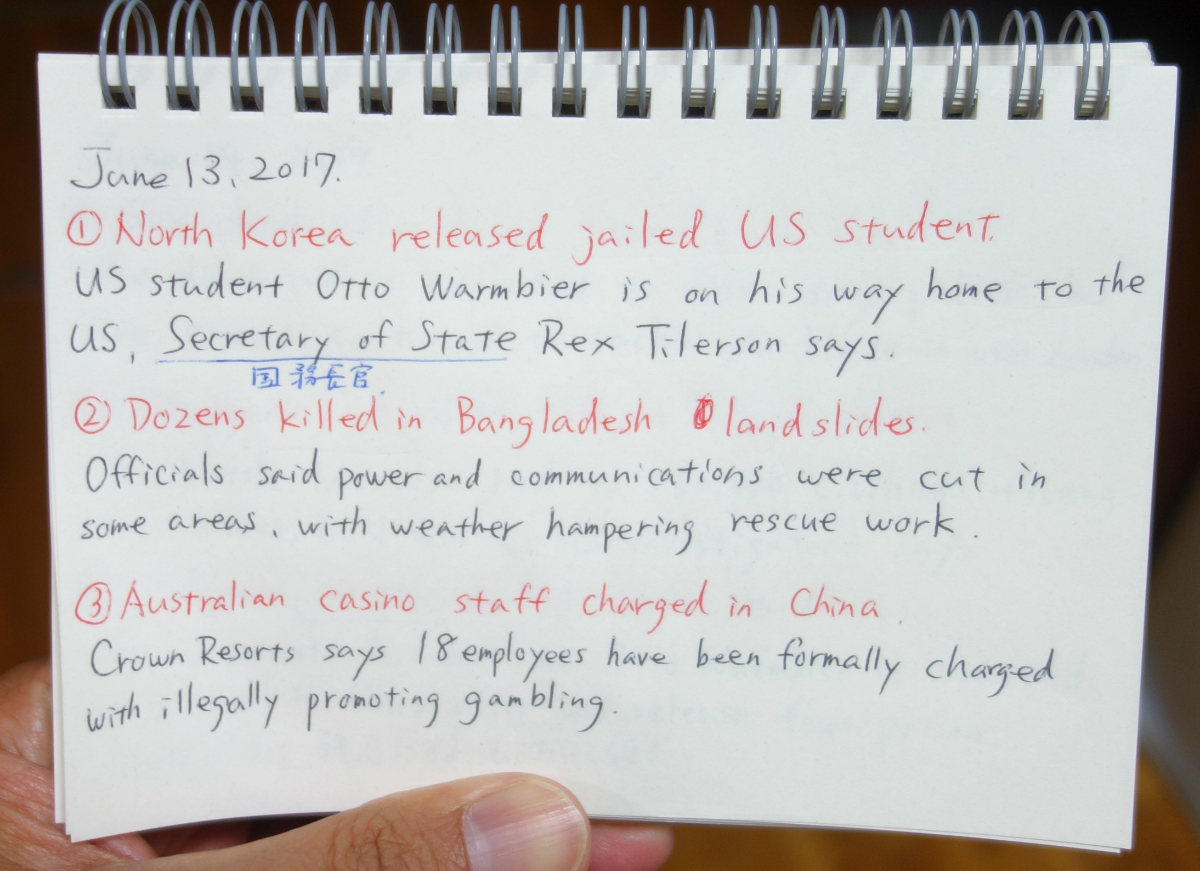 June 13, 2017.
① North Korea released jailed US student.
US student Otto Warmbier is on his way home to the
US, Secretary of State Rex Tilerson says.
国務長官.
② Dozens killed in Bangladesh landslides.
Officials said power and communications were cut in
some areas, with weather hampering rescue work.
③ Australian casino staff charged in China.
Crown Resorts says 18 employees have been formally charged
with illegally promoting gambling.